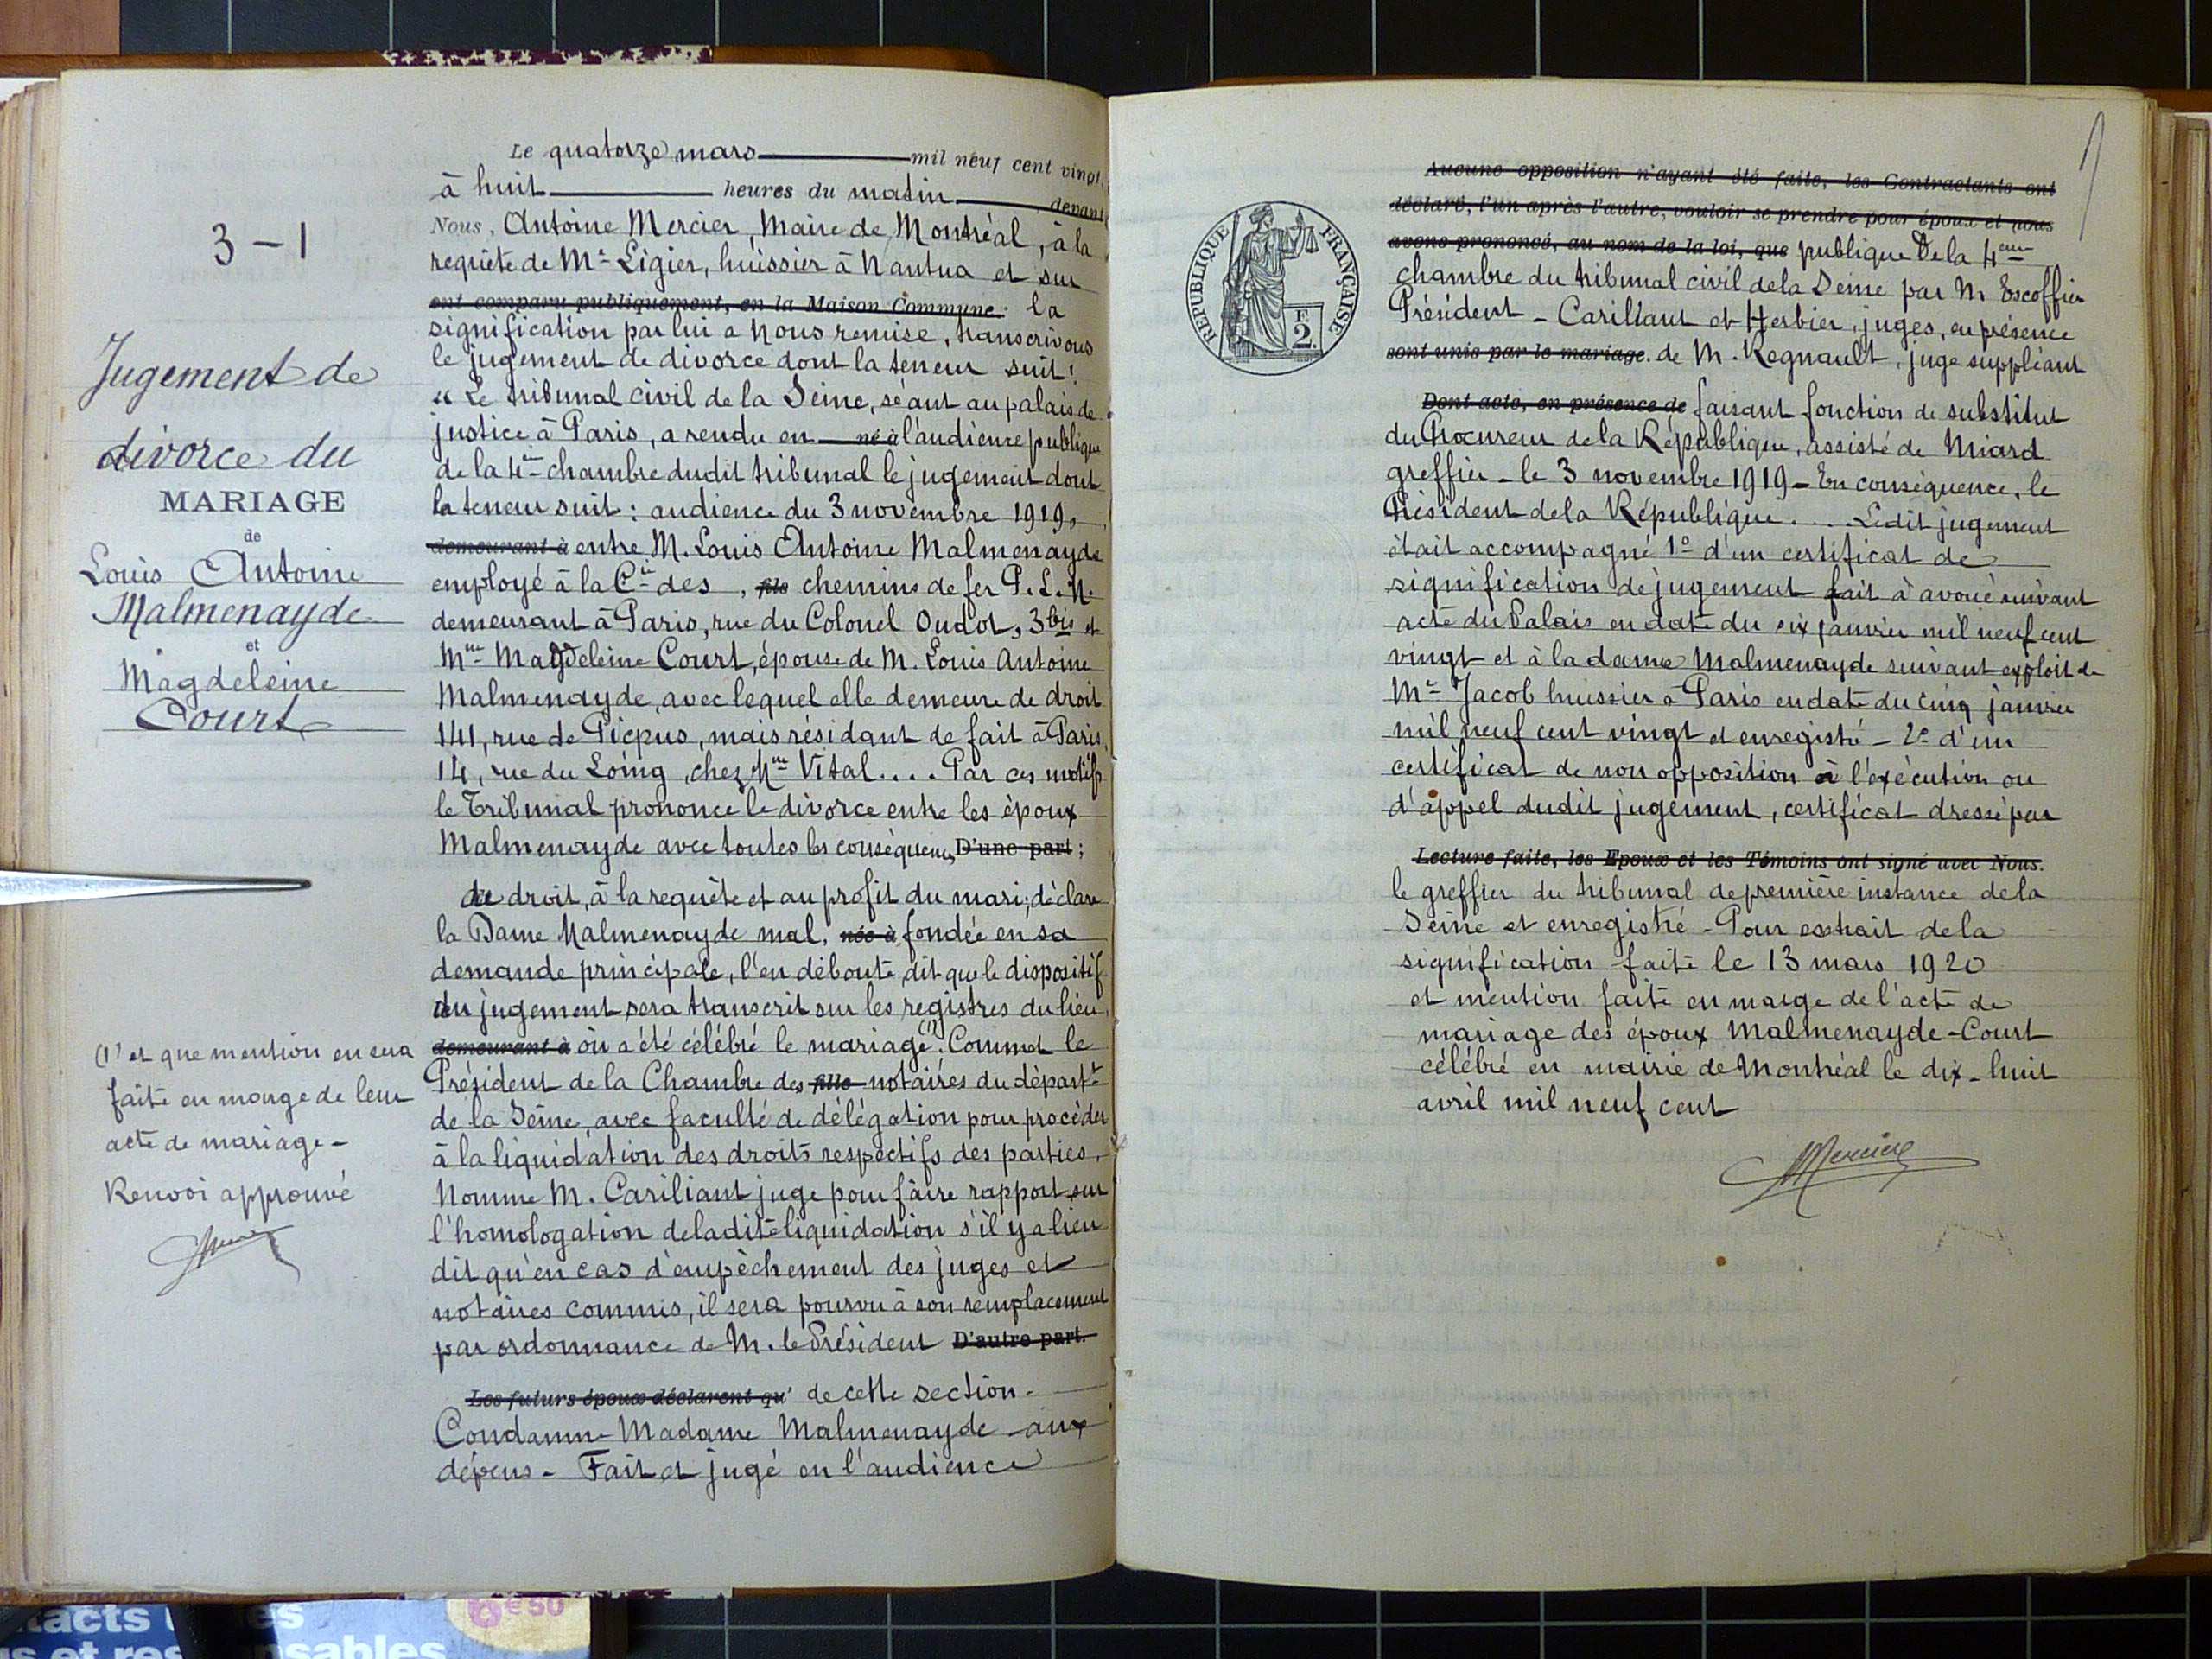 3 - 1
Jugement de
divorce du
MARIAGE
de
Louis Antoine
Malmenayde
et
Magdeleine
Court
(1) et que mention en sera
faite en marge de leur
acte de mariage -
Renvoi approuvé
Le quatorze mars mil neuf cent vingt,
à huit heures du matin devant
Nous, Antoine Mercier, Maire de Montréal, à la
requête de Me Ligier, huissier à Nantua et sur
ont comparu publiquement, en la Maison Commune : la
signification par lui a nous remise, transcrivons
le jugement de divorce dont la teneur suit :
« Le tribunal civil de la Seine, séant au palais de
justice à Paris, a rendu en né à l'audience publique
de la 4e chambre dudit tribunal le jugement dont
la teneur suit : audience du 3 novembre 1919,
demeurant à entre M. Louis Antoine Malmenayde
employé à la Cie des , fils chemins de fer P. L. M.
demeurant à Paris, rue du Colonel Oudot, 3 bis et
Mme Magdeleine Court, épouse de M. Louis Antoine
Malmenayde, avec lequel elle demeure de droit
141, rue de Picpus, mais résidant de fait à Paris,
14, rue du Loing, chez Mme Vital.... Par ces motifs
le Tribunal prononce le divorce entre les époux
Malmenayde avec toutes les conséquences D'une part ;
de droit, à la requête et au profit du mari; déclare
la Dame Malmenayde mal, née à fondée en sa
demande principale, l'en déboute, dit que le dispositif
du jugement sera transcrit sur les registres du lieu
demeurant à où a été célébré le mariage (1). Commet le
Président de la Chambre des fille notaires du départt
de la Seine, avec faculté de délégation pour procéder
à la liquidation des droits respectifs des parties,
Nomme M. Cariliant juge pour faire rapport sur
l'homologation de ladite liquidation s'il y a lieu
dit qu'en cas d'empêchement des juges et
notaires commis, il sera pourvu à son remplacement
par ordonnance de M. le Président D'autre part.
Les futurs époux déclarent qu' de cette section -
Condamne Madame Malmenayde aux
dépens - Fait et jugé en l'audience
REPUBLIQUE FRANÇAISE
F.
2.
Aucune opposition n'ayant été faite, les Contractants ont
déclaré, l'un après l'autre, vouloir se prendre pour époux et nous
avons prononcé, au nom de la loi, que publique de la 4eme
chambre du tribunal civil de la Seine par M. Escoffier
Président - Cariliant et Herbier, juges, en présence
sont unis par le mariage. de M. Regnault, juge suppléant
Dont acte, en présence de faisant fonction de substitut
du Procureur de la République, assisté de Miard
greffier - le 3 novembre 1919 - En conséquence, le
Président de la République.... Ledit jugement
était accompagné 1° d'un certificat de
signification de jugement fait à avoué suivant
acte du Palais en date du six janvier mil neuf cent
vingt et à la dame Malmenayde suivant exploit de
Me Jacob huissier à Paris en date du cinq janvier
mil neuf cent vingt et enregistré - 2° d'un
certificat de non opposition à l'exécution ou
d'appel dudit jugement, certificat dressé par
Lecture faite, les Epoux et les Témoins ont signé avec Nous.
le greffier du tribunal de première instance de la
Seine et enregistré - Pour extrait de la
signification faite le 13 mars 1920
et mention faite en marge de l'acte de
mariage des époux Malmenayde - Court
célébré en mairie de Montréal le dix-huit
avril mil neuf cent
AMercier
6 € 50